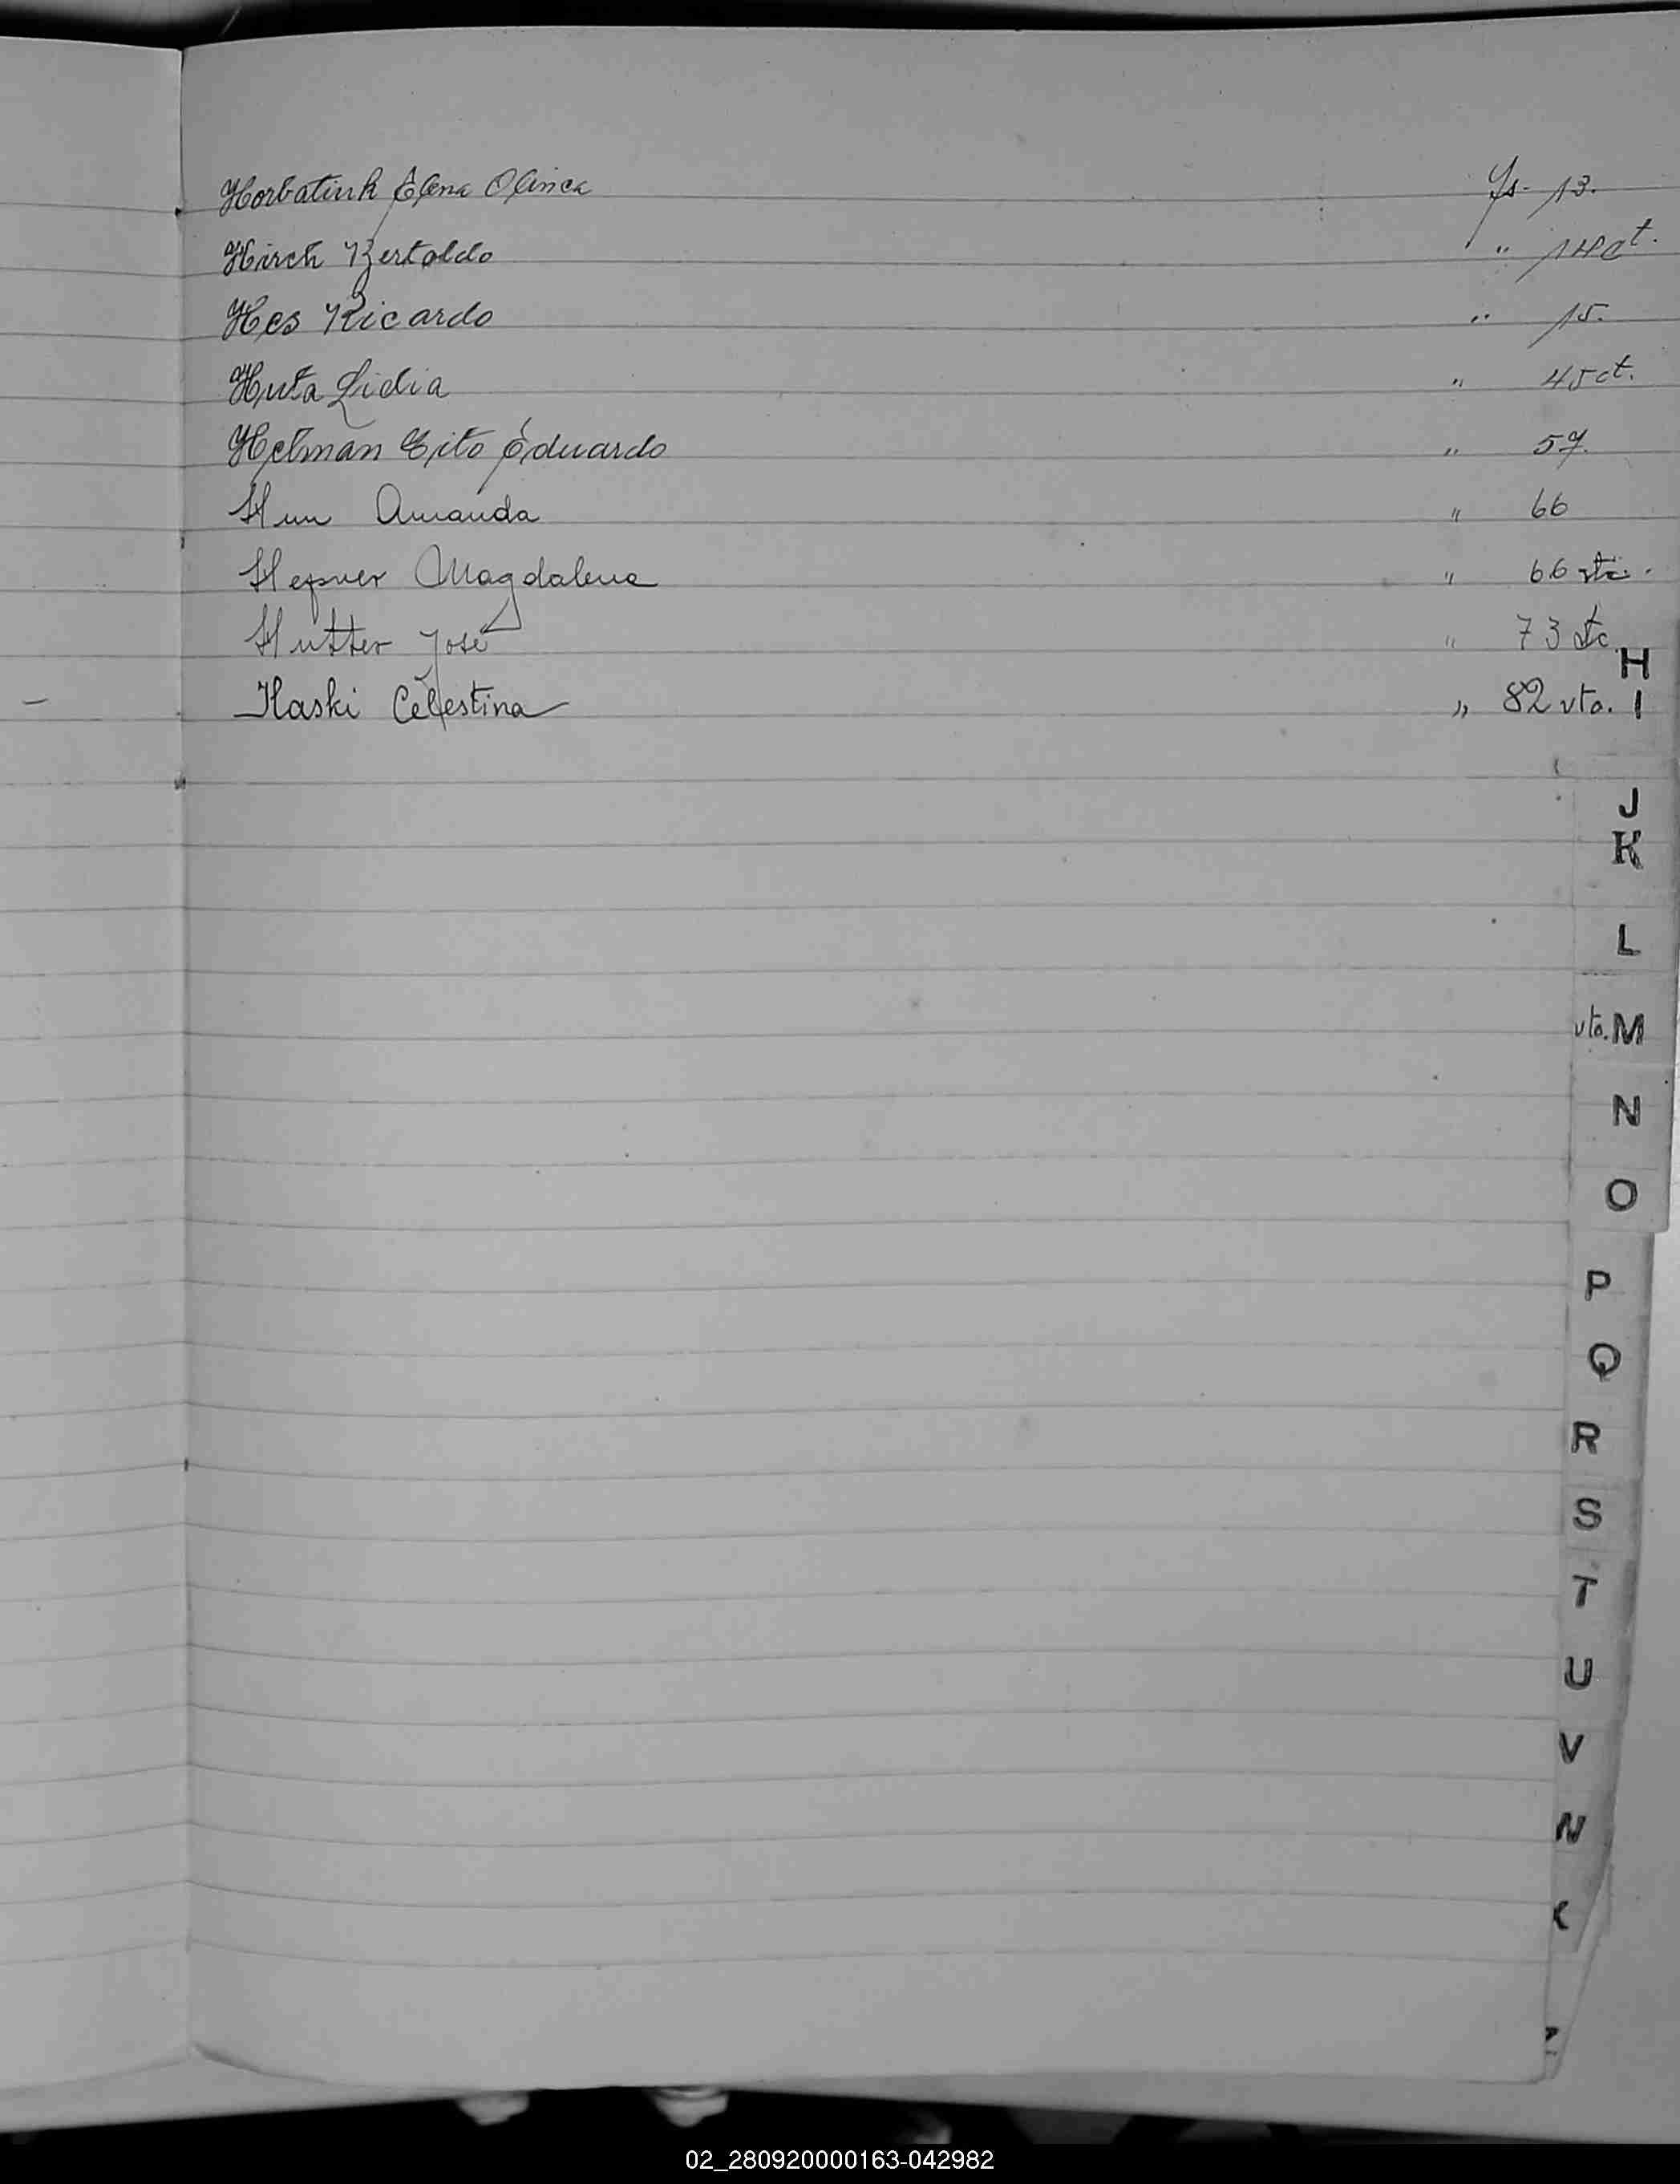 Horbatiuk Elena Olinca Fs- 13.
Hirch Bertoldo " 14 ct.
Hes Ricardo " 15.
Huta Lidia " 45 ct.
Helman Tito Eduardo " 57.
Hun Amanda " 66
Hepner Magdalena " 66 vta.
Hutter José " 73 vta.
Haski Celestina " 82 vta.
H
I
J
K
L
vta. M
N
O
P
Q
R
S
T
U
V
02_280920000163-042982